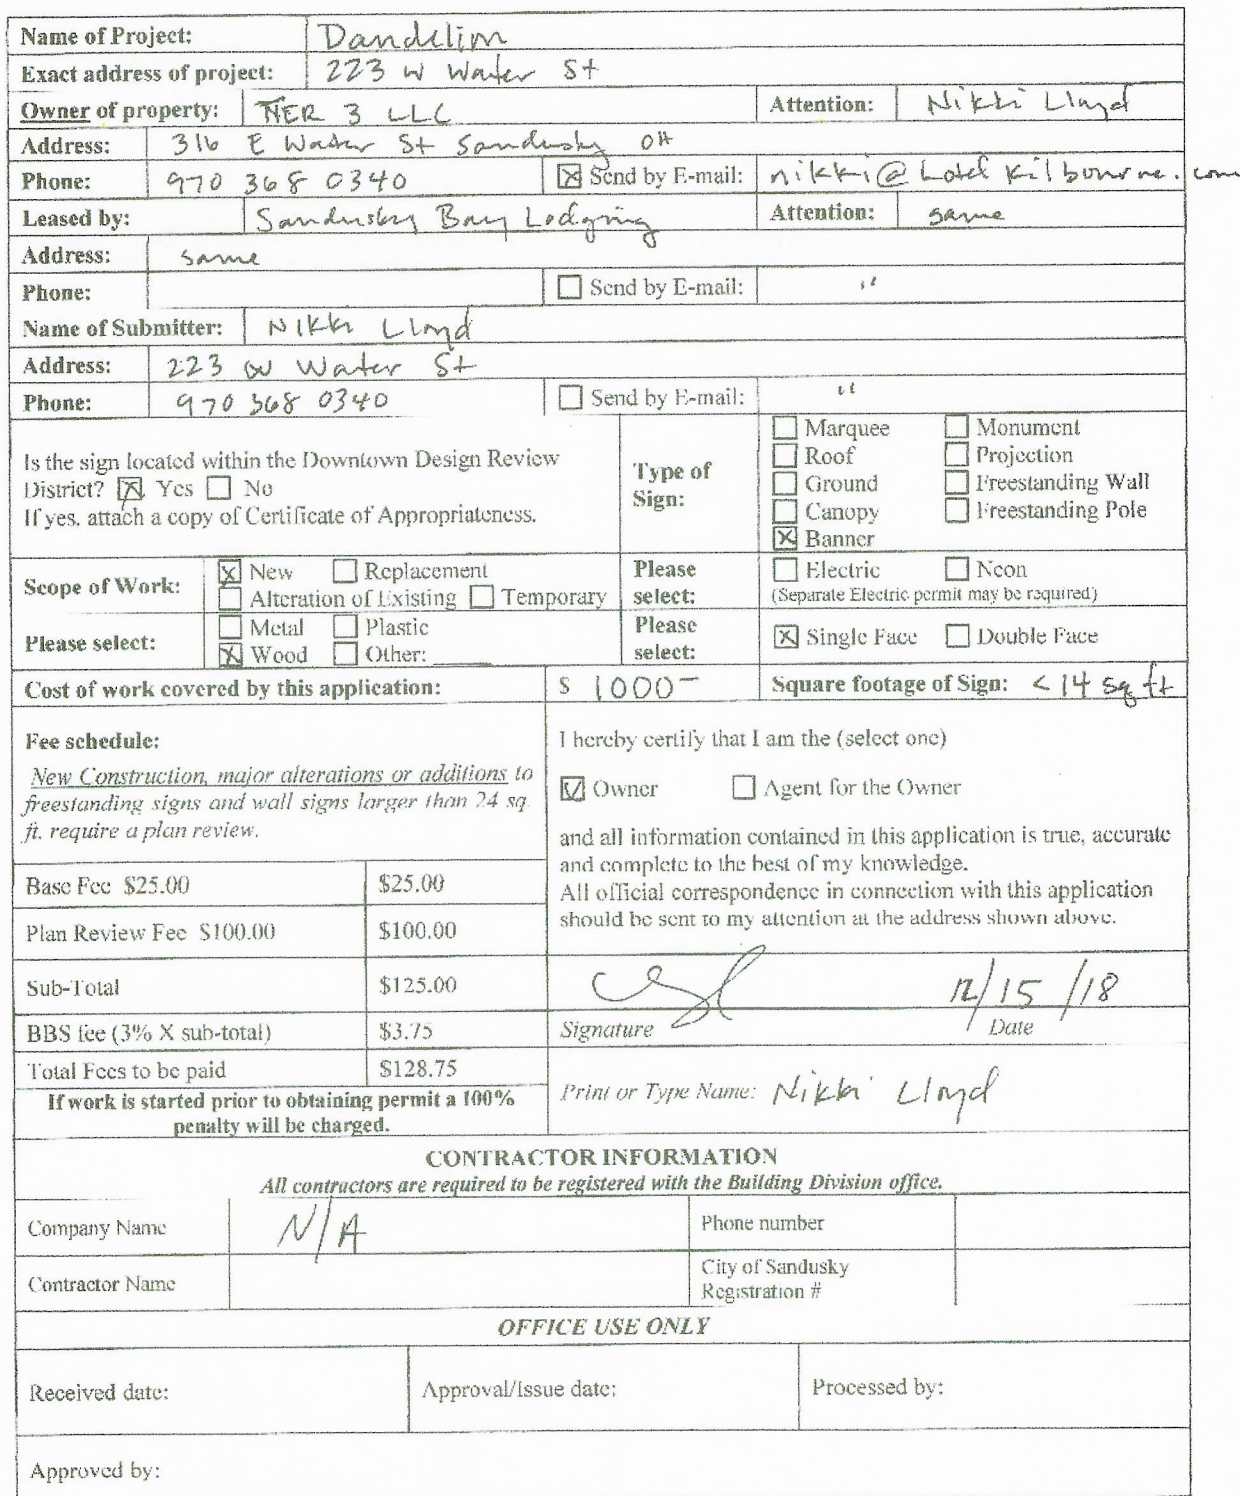 Name of Project: Dandelion
Exact address of project: 223 W Water St
Owner of property: TIER 3 LLC Attention: Nikki Lloyd
Address: 316 E Water St Sandusky OH
Phone: 970 368 0340 ☒ Send by E-mail: nikki@hotelkilbourne.com
Leased by: Sandusky Bay Lodging Attention: same
Address: same
Phone: ☐ Send by E-mail: "
Name of Submitter: Nikki Lloyd
Address: 223 W Water St
Phone: 970 368 0340 ☐ Send by E-mail: "
Is the sign located within the Downtown Design Review
District? ☒ Yes ☐ No
If yes, attach a copy of Certificate of Appropriateness.
Type of
Sign:
☐ Marquee ☐ Monument
☐ Roof ☐ Projection
☐ Ground ☐ Freestanding Wall
☐ Canopy ☐ Freestanding Pole
☒ Banner
Scope of Work: ☒ New ☐ Replacement
☐ Alteration of Existing ☐ Temporary
Please
select:
☐ Electric ☐ Neon
(Separate Electric permit may be required)
Please select: ☐ Metal ☐ Plastic
☒ Wood ☐ Other: ____
Please
select:
☒ Single Face ☐ Double Face
Cost of work covered by this application: $ 1000- Square footage of Sign: < 14 sq ft
Fee schedule:
New Construction, major alterations or additions to
freestanding signs and wall signs larger than 24 sq.
ft. require a plan review.
Base Fee $25.00 $25.00
Plan Review Fee $100.00 $100.00
Sub-Total $125.00
BBS fee (3% X sub-total) $3.75
Total Fees to be paid $128.75
If work is started prior to obtaining permit a 100%
penalty will be charged.
I hereby certify that I am the (select one)
☑ Owner ☐ Agent for the Owner
and all information contained in this application is true, accurate
and complete to the best of my knowledge.
All official correspondence in connection with this application
should be sent to my attention at the address shown above.
12/15/18
Signature Date
Print or Type Name: Nikki Lloyd
CONTRACTOR INFORMATION
All contractors are required to be registered with the Building Division office.
Company Name N/A Phone number
Contractor Name City of Sandusky
Registration #
OFFICE USE ONLY
Received date: Approval/Issue date: Processed by:
Approved by: